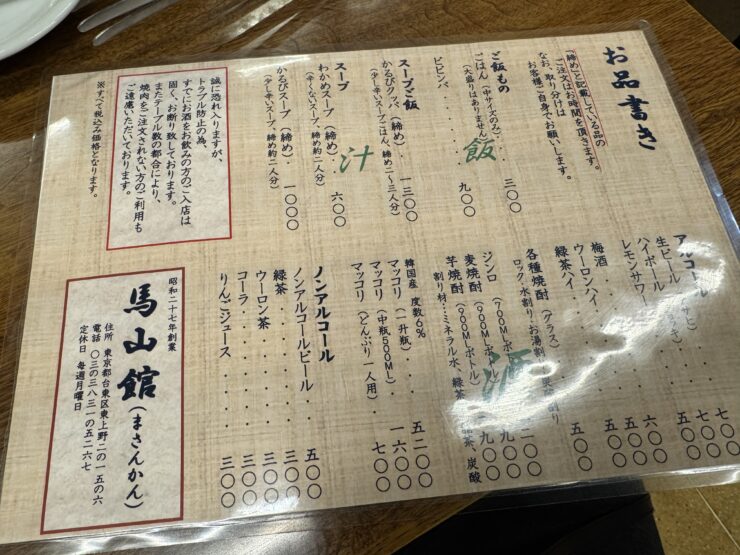 お品書き
「締め」と記載している品の
ご注文はお時間を頂きます。
なお、取り分けは
お客様ご自身でお願いします。
ご飯もの
飯
ごはん(中サイズのみ)・・三〇〇
(大盛りはありません)
ビビンバ・・・・・・九〇〇
スープご飯
かるびクッパ(締め)・一三〇〇
(少し辛いスープ、ごはん、締め二〜三人分)
スープ
汁
わかめスープ(締め)・六〇〇
(辛くないスープ、締め約二人分)
かるびスープ(締め)・一〇〇〇
(少し辛いスープ、締め約二人分)
誠に恐れ入りますが、
トラブル防止の為、
すでにお酒をお飲みの方のご入店は
固く、お断り致しております。
またテーブル数の都合により、
焼肉をご注文されない方のご利用も
ご遠慮いただいております。
※すべて税込み価格となります。
アルコール
生ビール
七〇〇
ハイボール
七〇〇
レモンサワー
五〇〇
梅酒
六〇〇
ウーロンハイ
五〇〇
緑茶ハイ
五〇〇
各種焼酎(グラス)
ロック、水割り、お湯割り
酒
ジンロ
麦焼酎
芋焼酎
割り材…ミネラル水、緑茶
炭酸
韓国産 度数6%
マッコリ(一升瓶)・・五二〇〇
マッコリ(中瓶500ML)・一六〇〇
マッコリ(どんぶり一人用)・七〇〇
ノンアルコール
ノンアルコールビール・・五〇〇
緑茶・・・・・・三〇〇
ウーロン茶・・・・三〇〇
コーラ・・・・・三〇〇
りんごジュース・・・三〇〇
昭和二十七年創業
馬山館(まさんかん)
住所 東京都台東区東上野二の一五の六
電話 〇三の三八三一の五二六七
定休日 毎週月曜日